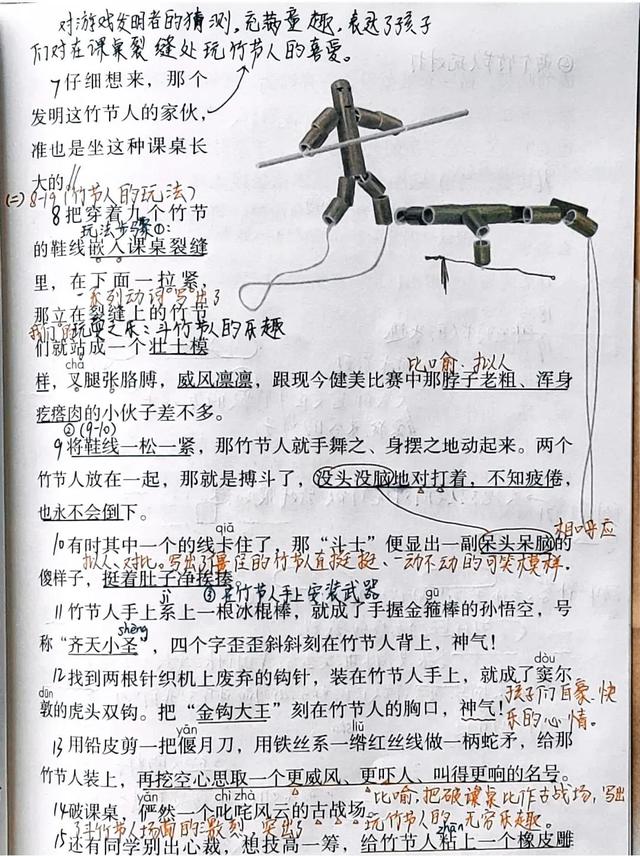 对游戏发明者的猜测,充满童趣,表达了孩子
们对在课桌裂缝处玩竹节人的喜爱。
7仔细想来,那个
发明这竹节人的家伙,
准也是坐这种课桌长
大的。
(二)8-19(竹节人的玩法)
8把穿着九个竹节
玩法步骤①:
的鞋线嵌入课桌裂缝
里,在下面一拉紧,
一系列动词。写出了
那立在裂缝上的竹节
我们的玩耍之乐:斗竹节人的乐趣
们就站成一个壮士模
chǎ
比喻、拟人
样,叉腿张胳膊,威风凛凛,跟现今健美比赛中那脖子老粗、浑身
疙瘩肉的小伙子差不多。
②(9-10)
9将鞋线一松一紧,那竹节人就手舞之、身摆之地动起来。两个
竹节人放在一起,那就是搏斗了,没头没脑地对打着,不知疲倦,
也永不会倒下。
相呼应
qiǎ
10有时其中一个的线卡住了,那“斗士”便显出一副呆头呆脑的
拟人、对比。写出了卡住的竹节人直挺挺、一动不动的可笑模样。
傻样子,挺着肚子净挨揍。
③在竹节人手上安装武器
jì gū
11竹节人手上系上一根冰棍棒,就成了手握金箍棒的孙悟空,号
shèng
称“齐天小圣”,四个字歪歪斜斜刻在竹节人背上,神气!
dòu
12找到两根针织机上废弃的钩针,装在竹节人手上,就成了窦尔
dūn
孩子们自豪、快
乐的心情。
敦的虎头双钩。把“金钩大王”刻在竹节人的胸口,神气!
yǎn liǔ
13用铅皮剪一把偃月刀,用铁丝系一绺红丝线做一柄蛇矛,给那
竹节人装上,再挖空心思取一个更威风、更吓人、叫得更响的名号。
yǎn chì zhà
14破课桌,俨然一个叱咤风云的古战场。
比喻,把破课桌比作古战场,写出
了斗竹节人场面的激烈,突出了玩竹节人的无穷乐趣。
zhān
15还有同学别出心裁,想技高一筹,给竹节人粘上一个橡皮雕